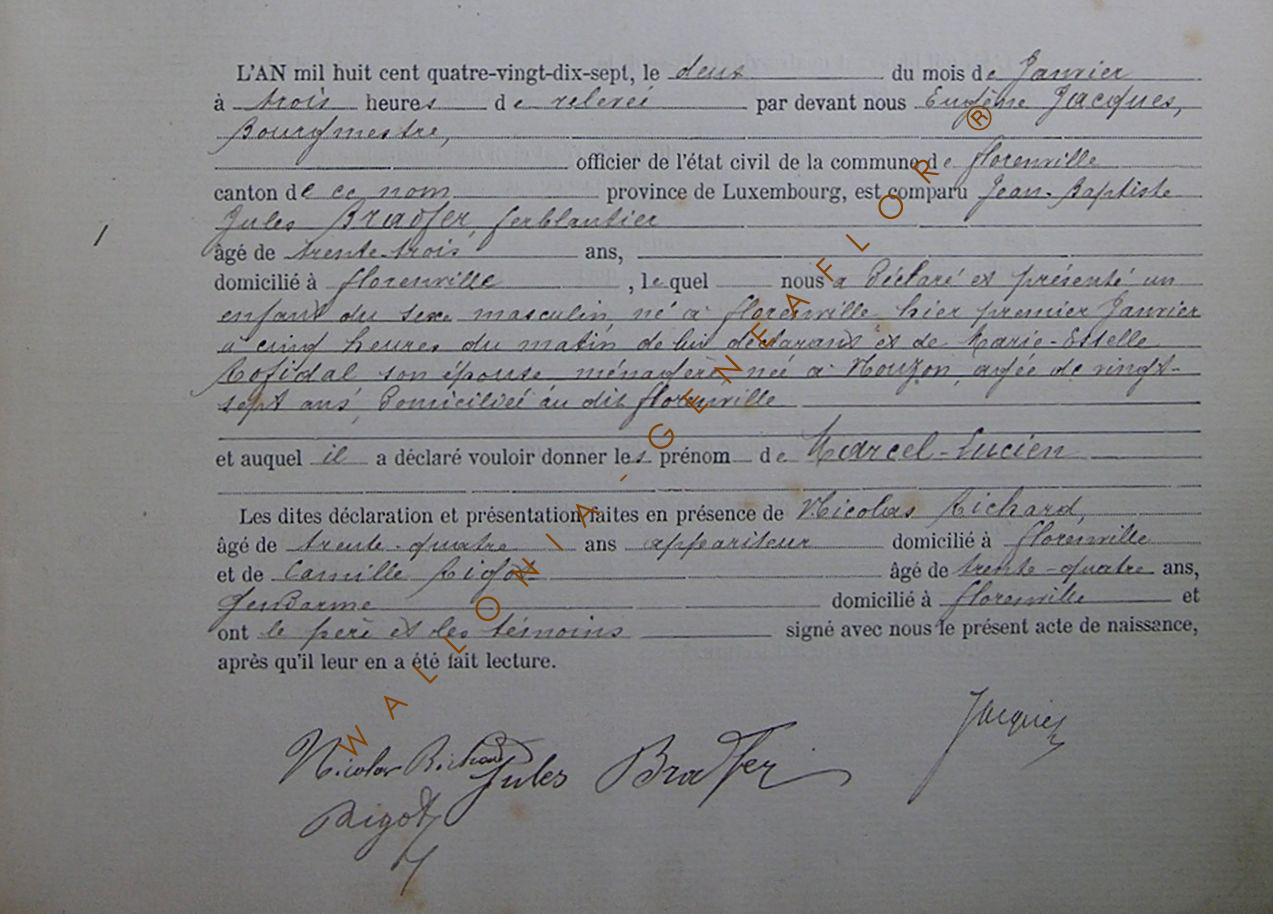 L'AN mil huit cent quatre-vingt-dix-sept, le deux du mois de Janvier
à trois heures de relevée par devant nous Eugène Jacques,
Bourgmestre,
officier de l'état civil de la commune de florenville
canton de ce nom province de Luxembourg, est comparu Jean-Baptiste
Jules Bradfer, ferblantier
1
âgé de trente-trois ans,
domicilié à florenville, lequel nous a déclaré et présenté un
enfant du sexe masculin né à florenville hier premier Janvier
à cinq heures du matin de lui déclarant et de Marie-Estelle
Cofidal son épouse ménagère née à Mouzon, agée de vingt-
sept ans, domiciliée au dit florenville
et auquel il a déclaré vouloir donner les prénom de Marcel-Lucien
Les dites déclaration et présentation faites en présence de Nicolas Richard,
âgé de trente-quatre ans appariteur domicilié à florenville
et de Camille Rigot âgé de trente-quatre ans,
Gendarme domicilié à florenville et
ont le père et les témoins signé avec nous le présent acte de naissance,
après qu'il leur en a été fait lecture.
Jacques
Nicolas Richard Jules Bradfer
Rigot
WALLONIA-GENEAFLOR ®